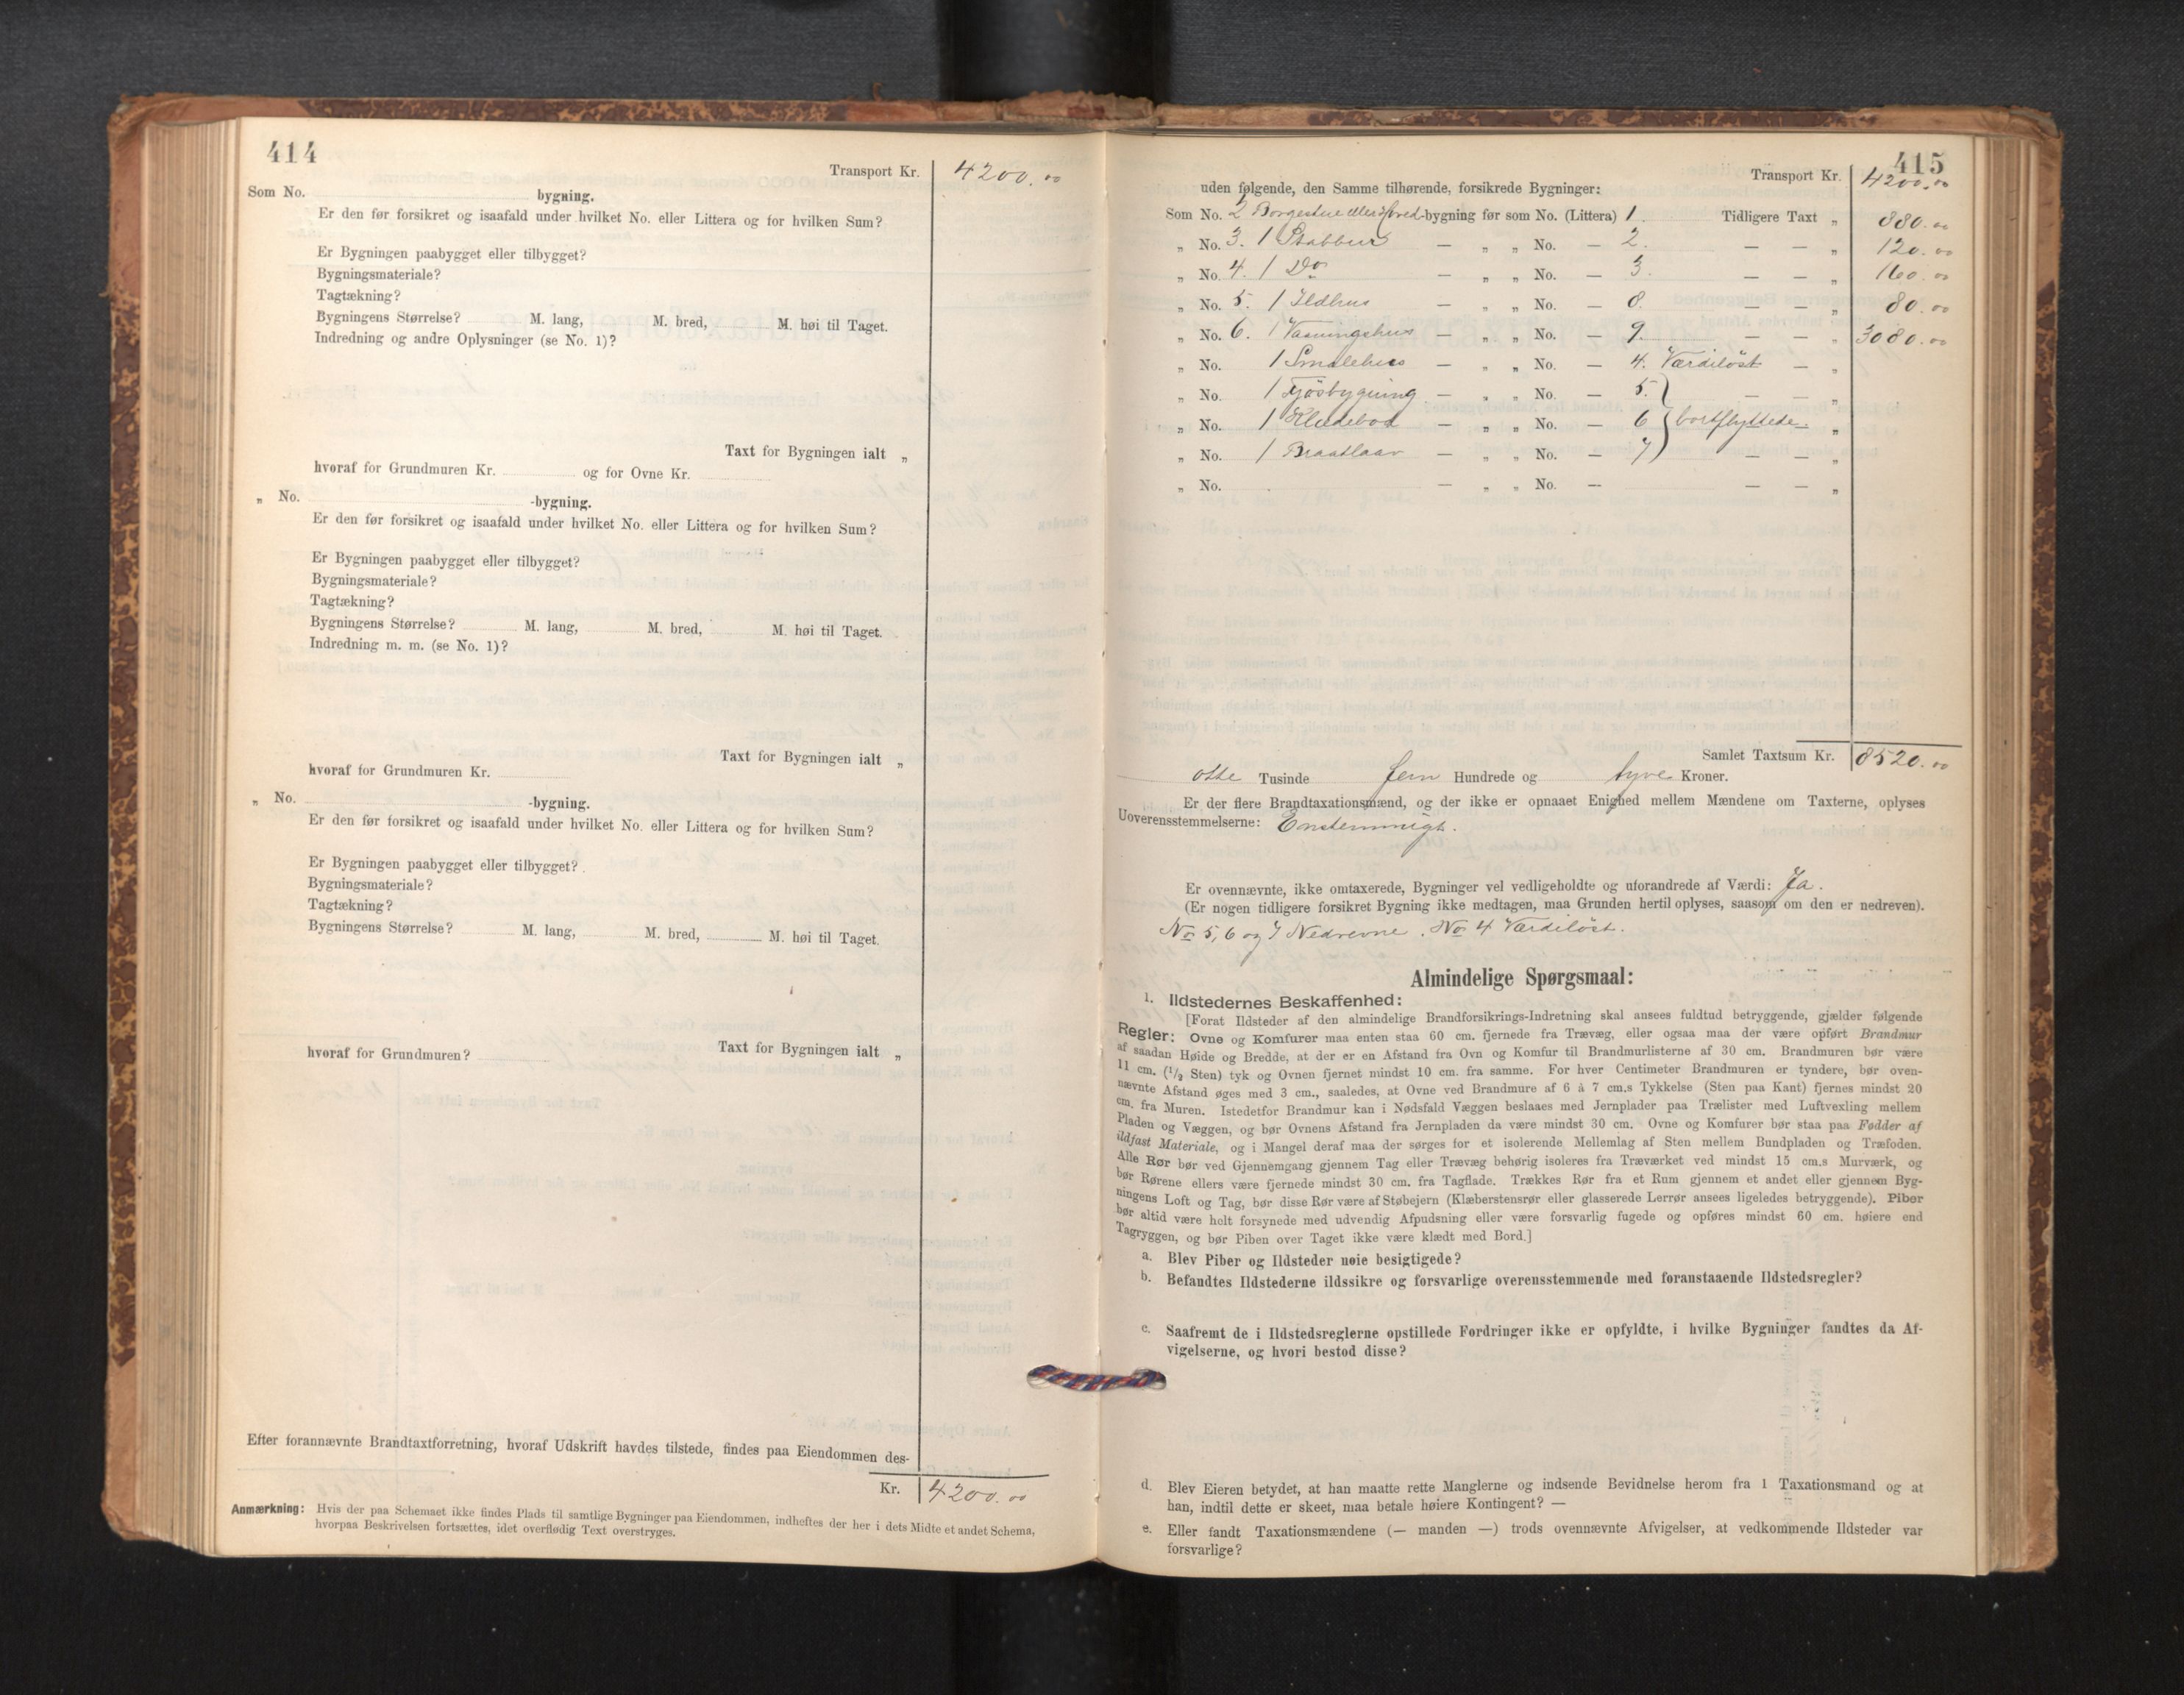 414
Transport Kr. 4200.00
Som No. bygning.
Er den før forsikret og isaafald under hvilket No. eller Littera og for hvilken Sum?
Er Bygningen paabygget eller tilbygget?
Bygningsmateriale?
Tagtækning?
Bygningens Størrelse? M. lang, M. bred, M. høi til Taget.
Indredning og andre Oplysninger (se No. 1)?
Taxt for Bygningen ialt „
hvoraf for Grundmuren Kr. og for Ovne Kr.
„ No. -bygning.
Er den før forsikret og isaafald under hvilket No. eller Littera og for hvilken Sum?
Er Bygningen paabygget eller tilbygget?
Bygningsmateriale?
Tagtækning?
Bygningens Størrelse? M. lang, M. bred, M. høi til Taget.
Indredning m. m. (se No. 1)?
Taxt for Bygningen ialt „
hvoraf for Grundmuren Kr.
„ No. -bygning.
Er den før forsikret og isaafald under hvilket No. eller Littera og for hvilken Sum?
Er Bygningen paabygget eller tilbygget?
Bygningsmateriale?
Tagtækning?
Bygningens Størrelse? M. lang, M. bred, M. høi til Taget.
Taxt for Bygningen ialt „
hvoraf for Grundmuren?
Efter forannævnte Brandtaxtforretning, hvoraf Udskrift havdes tilstede, findes paa Eiendommen des-
Kr. 4200.00
Anmærkning: Hvis der paa Schemaet ikke findes Plads til samtlige Bygninger paa Eiendommen, indheftes der her i dets Midte et andet Schema,
hvorpaa Beskrivelsen fortsættes, idet overflødig Text overstryges.
415
Transport Kr. 4200.00
uden følgende, den Samme tilhørende, forsikrede Bygninger:
Som No. 2 Borgestue med -bygning før som No. (Littera) 1. Tidligere Taxt „ 880.00
„ No. 3. 1 Stabbur — „ „ No. — 2. — — „ 120.00
„ No. 4. 1 Do — „ „ No. — 3. — — „ 160.00
„ No. 5. 1 Ildhus — „ „ No. — 8. — — „ 80.00
„ No. 6. 1 Vaaningshus — „ „ No. — 9. — — „ 3080.00
„ No. 1 Smalehus — „ „ No. — 4. Værdiløst — „
„ No. 1 Fjøsbygning — „ „ No. — 5. — — „
„ No. 1 Kludebod — „ „ No. — 6 bortflyttede. „
„ No. 1 Braatlaav — „ „ No. — 7 — — „
„ No. — „ „ No. — — — „
Samlet Taxtsum Kr. 8520.00
otte Tusinde fem Hundrede og tyve Kroner.
Er der flere Brandtaxationsmænd, og der ikke er opnaaet Enighed mellem Mændene om Taxterne, oplyses
Uoverensstemmelserne: Enstemmigt.
Er ovennævnte, ikke omtaxerede, Bygninger vel vedligeholdte og uforandrede af Værdi: Ja.
(Er nogen tidligere forsikret Bygning ikke medtagen, maa Grunden hertil oplyses, saasom om den er nedreven).
No 5, 6 og 7 Nedrevne. No 4 Værdiløst.
Almindelige Spørgsmaal:
1. Ildstedernes Beskaffenhed:
[Forat Ildsteder af den almindelige Brandforsikrings-Indretning skal ansees fuldtud betryggende, gjælder følgende
Regler: Ovne og Komfurer maa enten staa 60 cm. fjernede fra Trævæg, eller ogsaa maa der være opført Brandmur
af saadan Høide og Bredde, at der er en Afstand fra Ovn og Komfur til Brandmurlisterne af 30 cm. Brandmuren bør være
11 cm. (1/2 Sten) tyk og Ovnen fjernet mindst 10 cm. fra samme. For hver Centimeter Brandmuren er tyndere, bør oven-
nævnte Afstand øges med 3 cm., saaledes, at Ovne ved Brandmure af 6 à 7 cm.s Tykkelse (Sten paa Kant) fjernes mindst 20
cm. fra Muren. Istedetfor Brandmur kan i Nødsfald Væggen beslaaes med Jernplader paa Trælister med Luftvexling mellem
Pladen og Væggen, og bør Ovnens Afstand fra Jernpladen da være mindst 30 cm. Ovne og Komfurer bør staa paa Fødder af
ildfast Materiale, og i Mangel deraf maa der sørges for et isolerende Mellemlag af Sten mellem Bundpladen og Træfoden.
Alle Rør bør ved Gjennemgang gjennem Tag eller Trævæg behørig isoleres fra Træværket ved mindst 15 cm.s Murværk, og
bør Rørene ellers være fjernede mindst 30 cm. fra Tagflade. Trækkes Rør fra et Rum gjennem et andet eller gjennem Byg-
ningens Loft og Tag, bør disse Rør være af Støbejern (Klæberstensrør eller glasserede Lerrør ansees ligeledes betryggende). Piber
bør altid være helt forsynede med udvendig Afpudsning eller være forsvarlig fugede og opføres mindst 60 cm. høiere end
Tagryggen, og bør Piben over Taget ikke være klædt med Bord.]
a. Blev Piber og Ildsteder nøie besigtigede?
b. Befandtes Ildstederne ildssikre og forsvarlige overensstemmende med foranstaaende Ildstedsregler?
c. Saafremt de i Ildstedsreglerne opstillede Fordringer ikke er opfyldte, i hvilke Bygninger fandtes da Af-
vigelserne, og hvori bestod disse?
d. Blev Eieren betydet, at han maatte rette Manglerne og indsende Bevidnelse herom fra 1 Taxationsmand og at
han, indtil dette er skeet, maa betale høiere Kontingent? —
e. Eller fandt Taxationsmændene (— manden —) trods ovennævnte Afvigelser, at vedkommende Ildsteder var
forsvarlige?